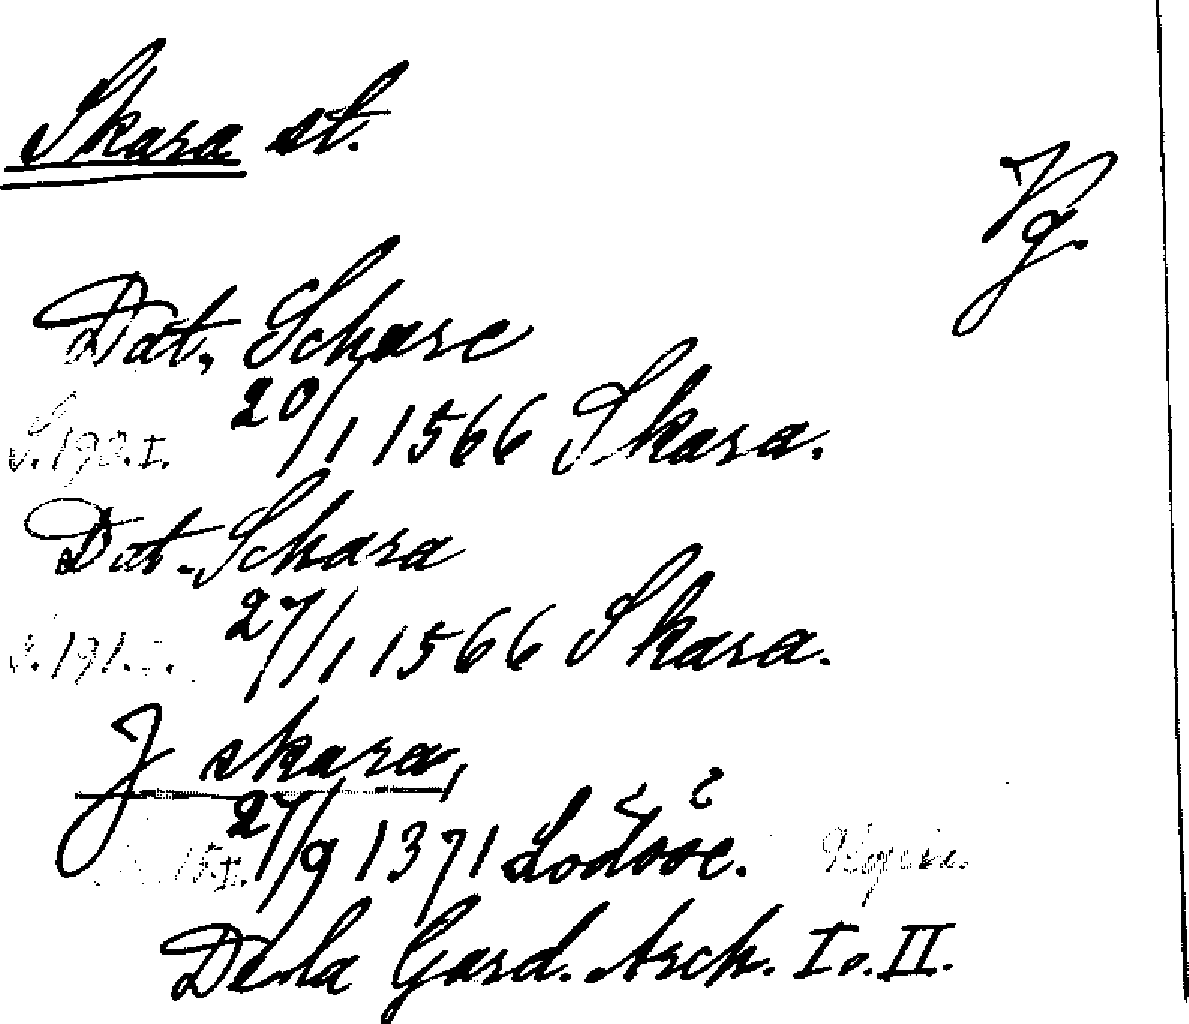 Skara st.
Vg.
Dat. Schare
20/1 1566 Skara.
S. 190. I.
Dat. Schara
27/1 1566 Skara.
S. 191. I.
J skara,
27/9 1371 Lödöse. Kopia.
De la Gard. Arch. I o. II.